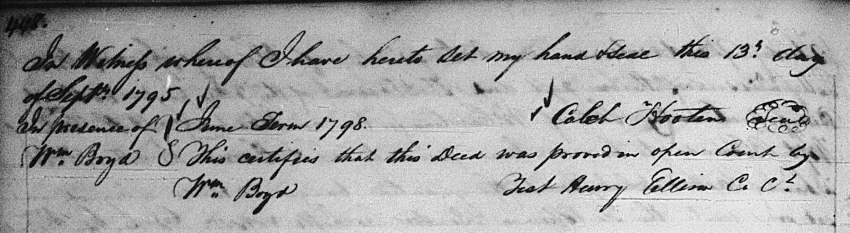 448.
In Witness whereof I have hereto set my hand & Seal this 13th day
of Septr. 1795
In presence of June Term 1798. Caleb Hooten Seal
Wm Boyd This certifies that this Deed was proved in open Court by
Wm Boyd Test Henry Ellison C. Ct